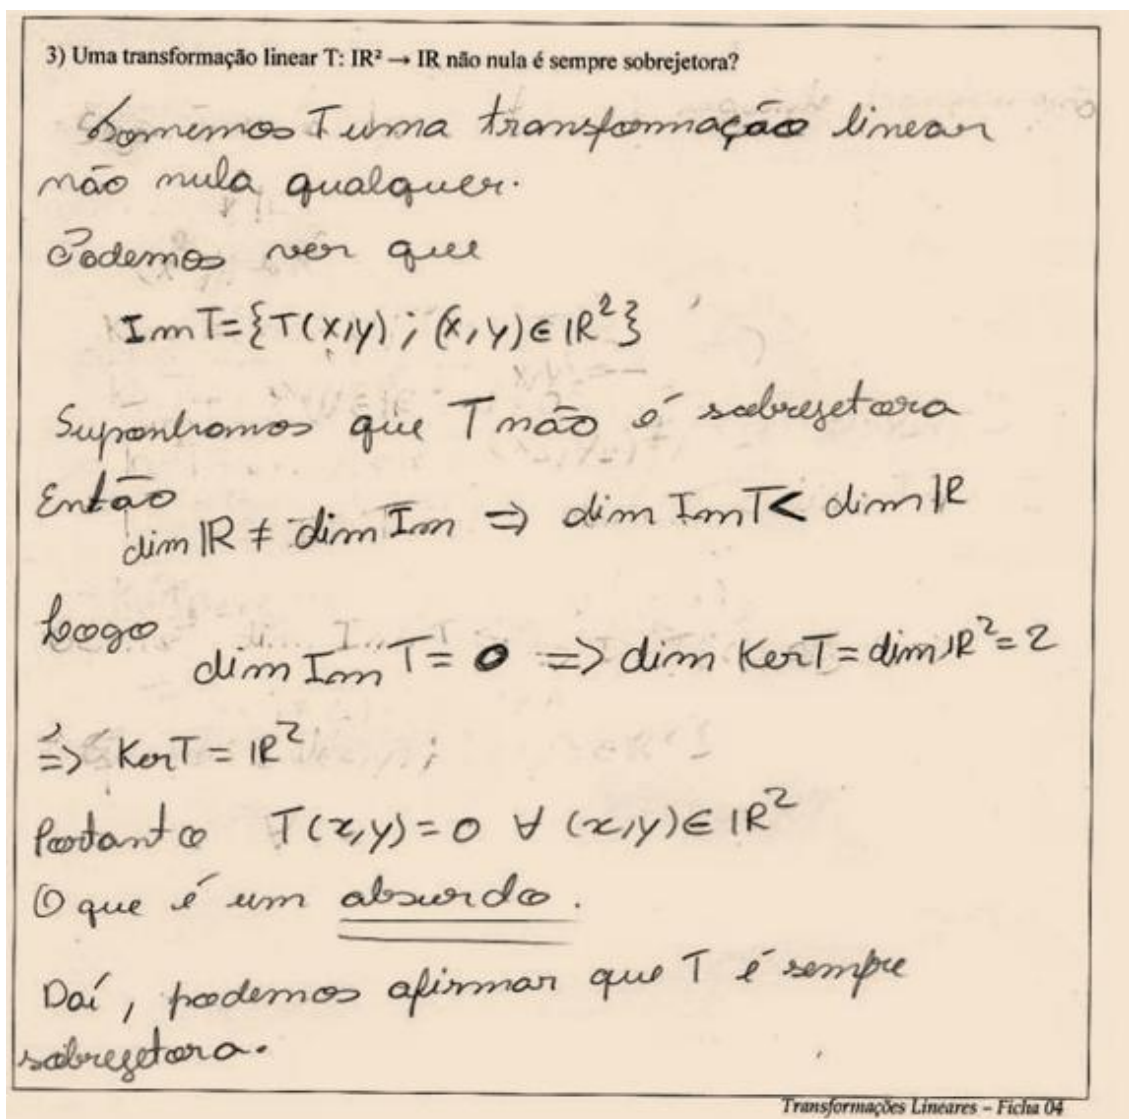 3) Uma transformação linear T: IR² → IR não nula é sempre sobrejetora?
Tomemos T uma transformação linear
não nula qualquer.
Podemos ver que
Im T = {T(x,y) ; (x,y) ∈ IR²}
Suponhamos que T não é sobrejetora
Então
dim IR ≠ dim Im ⇒ dim Im T < dim IR
Logo
dim Im T = 0 => dim Ker T = dim IR² = 2
=> Ker T = IR²
Portanto T(x,y) = 0 ∀ (x,y) ∈ IR²
O que é um absurdo.
Daí, podemos afirmar que T é sempre
sobrejetora.
Transformações Lineares – Ficha 04